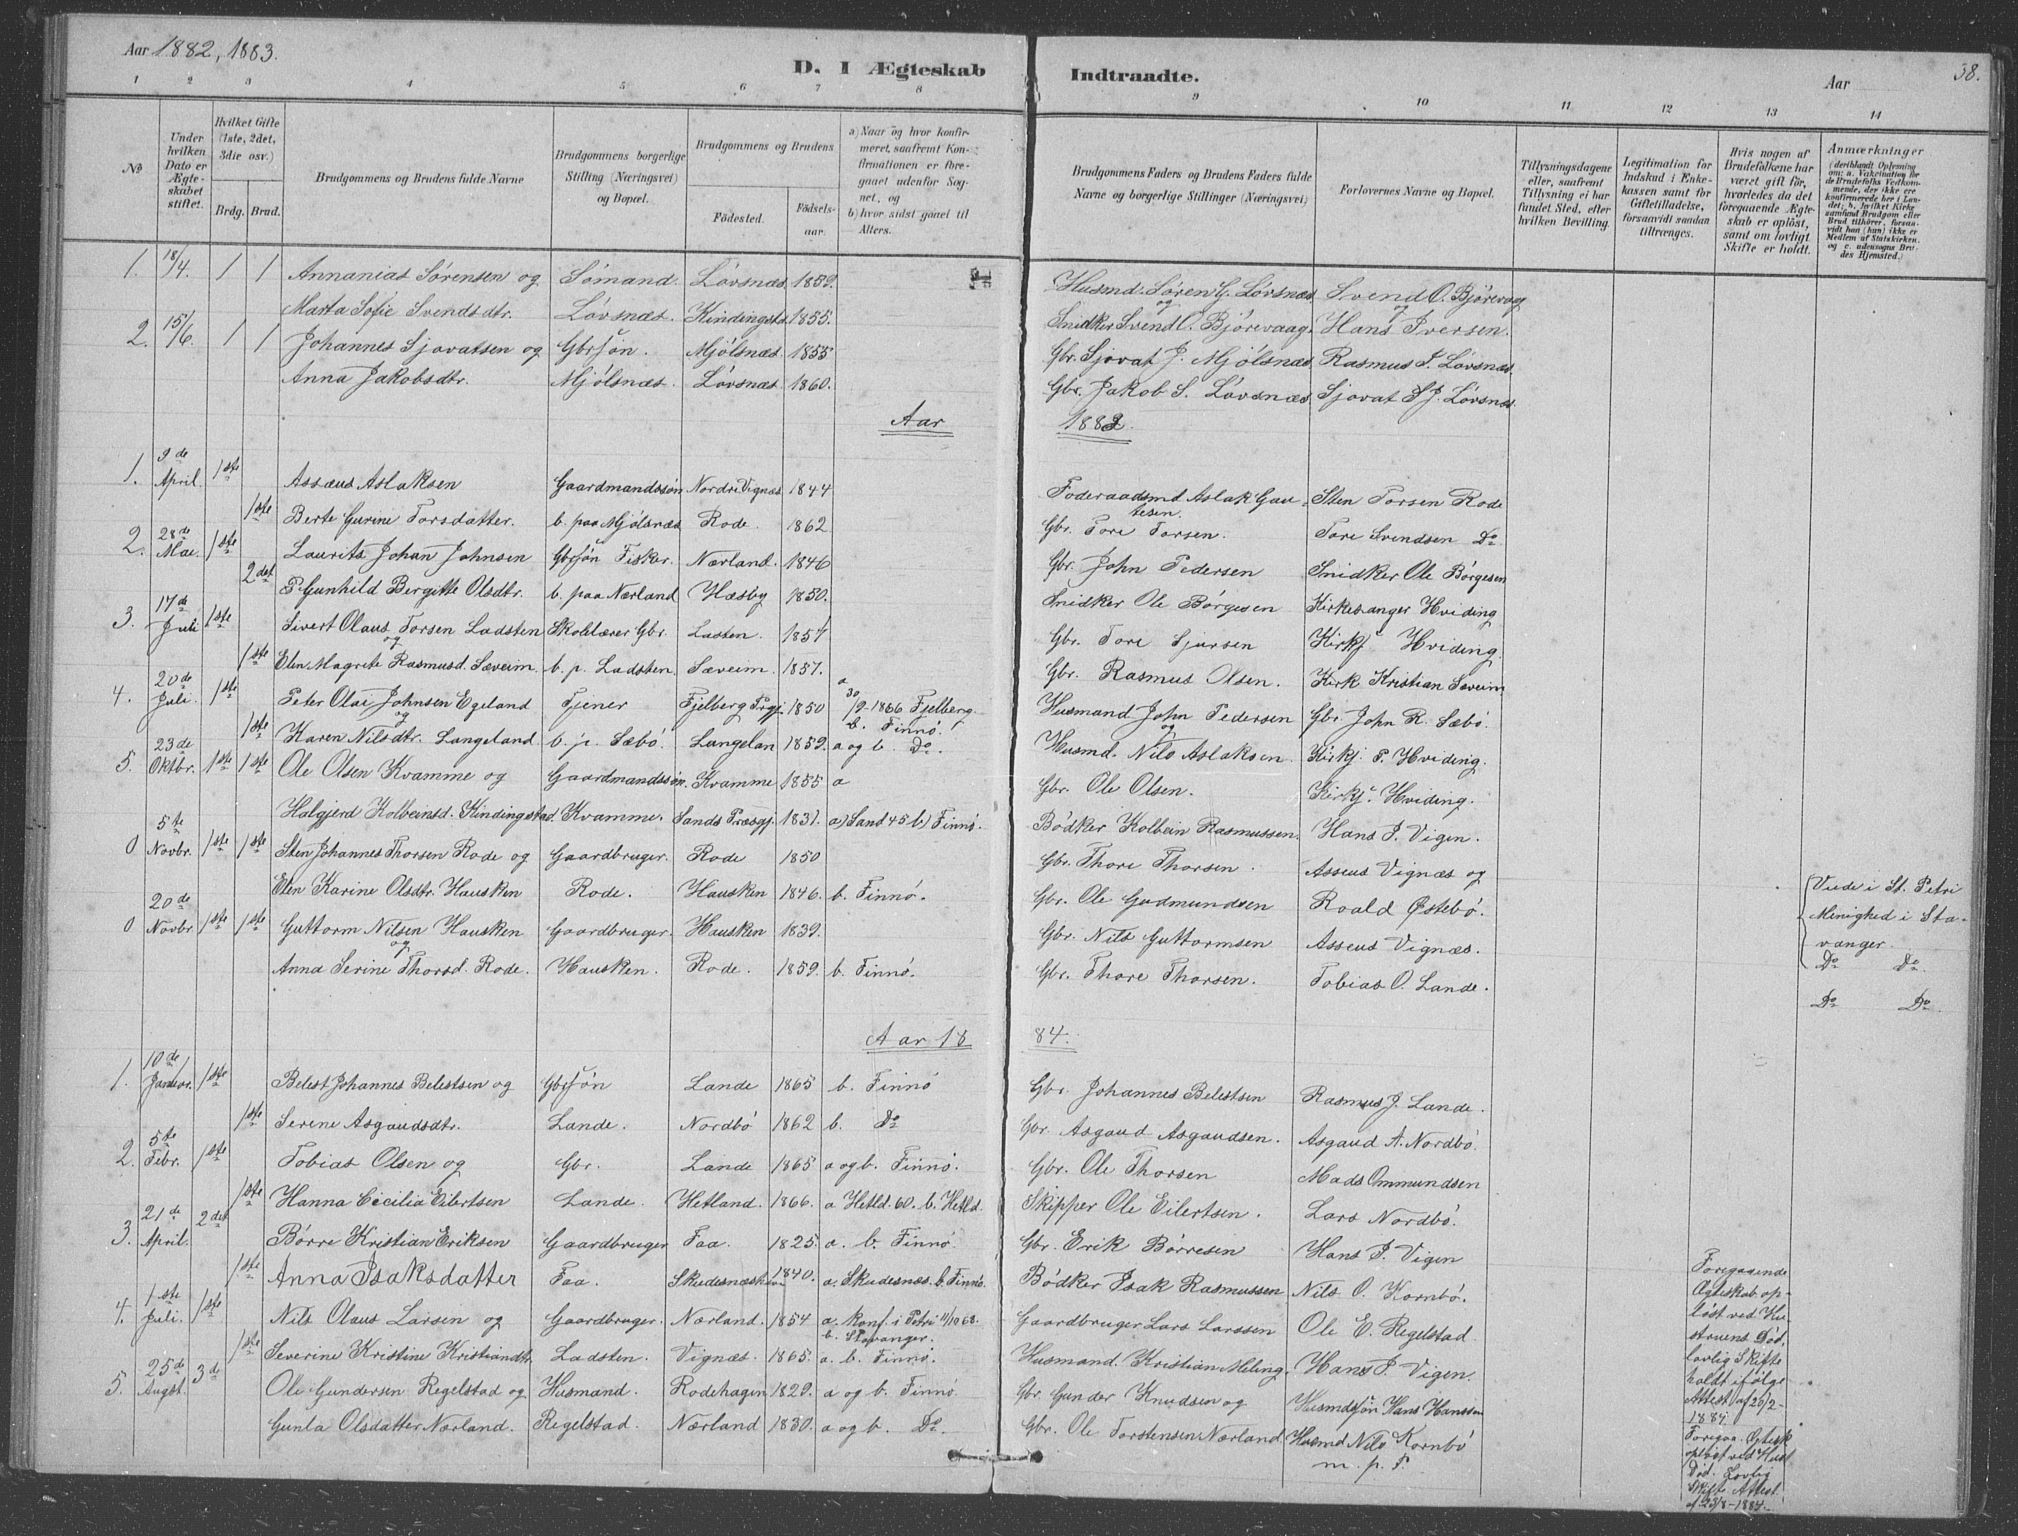 Aar 1882, 1883.
D. I Ægteskab
Indtraadte.
Aar
38.
1 2 3 4 5 6 7 8
9 10 11 12 13 14
No
Under hvilken Dato er Ægteskabet stiftet.
Hvilket Gifte (1ste, 2det, 3die osv.)
Brdg. Brud.
Brudgommens og Brudens fulde Navne
Brudgommens borgerlige Stilling (Næringsvei) og Bopæl.
Brudgommens og Brudens
Fødested.
Fødselsaar.
a) Naar og hvor konfirmeret, saafremt Konfirmationen er foregaaet udenfor Sognet, og
b) hvor sidst gaaet til Alters.
Brudgommens Faders og Brudens Faders fulde Navne og borgerlige Stillinger (Næringsvei)
Forlovernes Navne og Bopæl.
Tillysningsdagene eller, saafremt Tillysning ei har fundet Sted, efter hvilken Bevilling.
Legitimation for Indskud i Enkekassen samt for Giftetilladelse, forsaavidt saadan tiltrænges.
Hvis nogen af Brudefolkene har været gift før, hvorledes da det foregaaende Ægteskab er opløst, samt om lovligt Skifte er holdt.
Anmærkninger (deriblandt Oplysning om: a. Vakcination for de Brudefolks Vedkommende, der ikke ere konfirmerede her i Landet; b. hvilket Kirkesamfund Brudgom eller Brud tilhører, forsaavidt han (hun) ikke er Medlem af Statskirken, og c. udensogns Brudes Hjemsted.)
1. 18/4. 1 1 Annanias Sørensen og Sømand. Løvsnæs. 1859. Husmd. Søren G. Løvsnæs. Svend O. Bjørevaag
og og
Marta Sofie Svendsdtr. Løvsnæs. Kindingstd. 1855. Snidker Svend O. Bjørevaag. Hans Iversen.
2. 15/6. 1 1 Johannes Sjovatsen og Gbrsøn. Mjølsnæs. 1855 Gbr. Sjovat J. Mjølsnæs Rasmus J. Løvsnæs.
Anna Jakobsdtr. Mjølsnæs. Løvsnæs. 1860. Gbr. Jakob S. Løvsnæs. Sjovat S J. Løvsnæs.
Aar 1883.
1. 9de April. 1ste Assæus Aslaksen Gaardmandssøn Nordre Vignæs 1844 Føderaadsmd Aslak Gautesen. Sten Torsen Rode
1ste Berte Gurine Torsdatter. b. paa Mjølsnæs Rode. 1862 Gbr. Tore Torsen. Tore Svendsen Do
2. 28de Mai. 1ste Laurits Johan Johnsen Gbrsøn Fisker. Nærland. 1846 Gbr. John Pedersen Snidker Ole Børgesen
2det P. Gunhild Bergitte Olsdtr. b. paa Nærland Hæsby 1850. Snidker Ole Børgesen Kirkesanger Hviding
3. 17de Juli 1ste Sivert Olaus Torsen Ladsten Skolelærer Gbr. Lasten. 1857 Gbr. Tore Sjursen Kirkj. Hviding.
og
1ste Elen Magrete Rasmusd. Sæveim. b. p. Ladsten Sæveim. 1857. Gbr. Rasmus Olsen. Kirk Kristian Sæveim
4. 20de Juli. 1ste Peter Olai Johnsen Egeland Tjener Fjelberg Prgj. 1850 a 30/9-1866 Fjelberg. b. Finnø. Husmand John Pedersen Gbr. John R. Sæbø.
og og
1ste Karen Nilsdtr. Langeland b. p. Sæbø. Langelan 1859. a og b. Do. Husmd. Nils Aslaksen. Kirkj. P. Hviding.
5. 23de Oktbr. 1ste 1ste Ole Olsen Kvamme og Gaardmandssøn. Kvamme 1855 a Gbr. Ole Olsen. Kirkj. Hviding.
Halgjerd Kolbeinsd. Kindingstad. Kvamme. Sands Præsgj. 1831. a) Sand 45 b) Finnø. Bødker Kolbein Rasmussen. Hans J. Vigen.
0 5te Novbr. 1ste 1ste Sten Johannes Thorsen Rode og Gaardbruger. Rode 1850 Gbr. Thore Thorsen. Asseus Vignæs og
Elen Karine Olsdtr. Hausken Rode. Hausken 1846. b. Finnø. Gbr. Ole Gudmundsen Roald Østebø. Viede i St. Petri Minighed i Stavanger.
0 20de Novbr. 1ste 1ste Guttorm Nilsen Hausken Gaardbruger. Hausken 1839. Gbr. Nils Guttormsen Asseus Vignæs. Do Do.
og
Anna Serine Thorsd. Rode. Hausken. Rode. 1859. b. Finnø. Gbr. Thore Thorsen. Tobias O. Lande. Do Do.
Aar 1884.
1. 10de Januar. 1ste Belest Johannes Belestsen og Gbrsøn Lande 1865 b. Finnø Gbr. Johannes Belestsen Rasmus J. Lande.
1ste Serine Asgaudsdtr. Lande. Nordbø 1862 b. Do Gbr. Asgaud Asgaudsen. Asgaud A. Nordbø.
2. 5te Febr. 1ste Tobias Olsen og Gbr. Lande 1865 a og b. Finnø. Gbr. Ole Thorsen Mads Ommundsen
1ste Hanna Cecilia Eilertsen Lande. Hetland. 1866. a. Hetld. 60. b. Hetld. Skipper Ole Eilertsen. Lars Nordbø.
3. 21de April. 2det Børre Kristian Eriksen Gaardbruger Faa. 1825. a. b. Finnø. Gbr. Erik Børresen Hans J. Vigen
1ste Anna Isaksdatter Faa. Skudesnæshavn 1840. a. Skudesnæs. b. Finnø. Bødker Isak Rasmussen Nils O. Kornbø. Foregaaende Ægteskab opløst ved Hustruens Død, lovlig Skifte holdt ifølge Attest af 20/2-1884.
4. 1ste Juli. 1ste Nils Olaus Larsen og Gaardbruger. Nærland. 1854 a. Konf. i Petri 11/10 68. b. Stavanger. Gaardbruger Lars Larssen Ole E. Regelstad.
1ste Severine Kristine Kristiandtr. Ladsten. Vignæs. 1865. a. b. Finnø. Husmand. Kristian Meling. Hans J. Vigen.
5. 25de Augst. 3de Ole Gundersen Regelstad og Husmand. Rodehagen 1829. a og b. Finnø. Gbr Gunder Knudsen og Husmdsøn Hans Hanssen
Gunla Olsdatter Nærland. Regelstad. Nærland 1830. a og b. Do. Gbr. Ole Torstensen Nærland Husmd Nils Kornbø m. p. P. Foregaa. Ægtesk. opløst ved Hust Død. Lovlig Skifte Attest. af 23/8-1884.